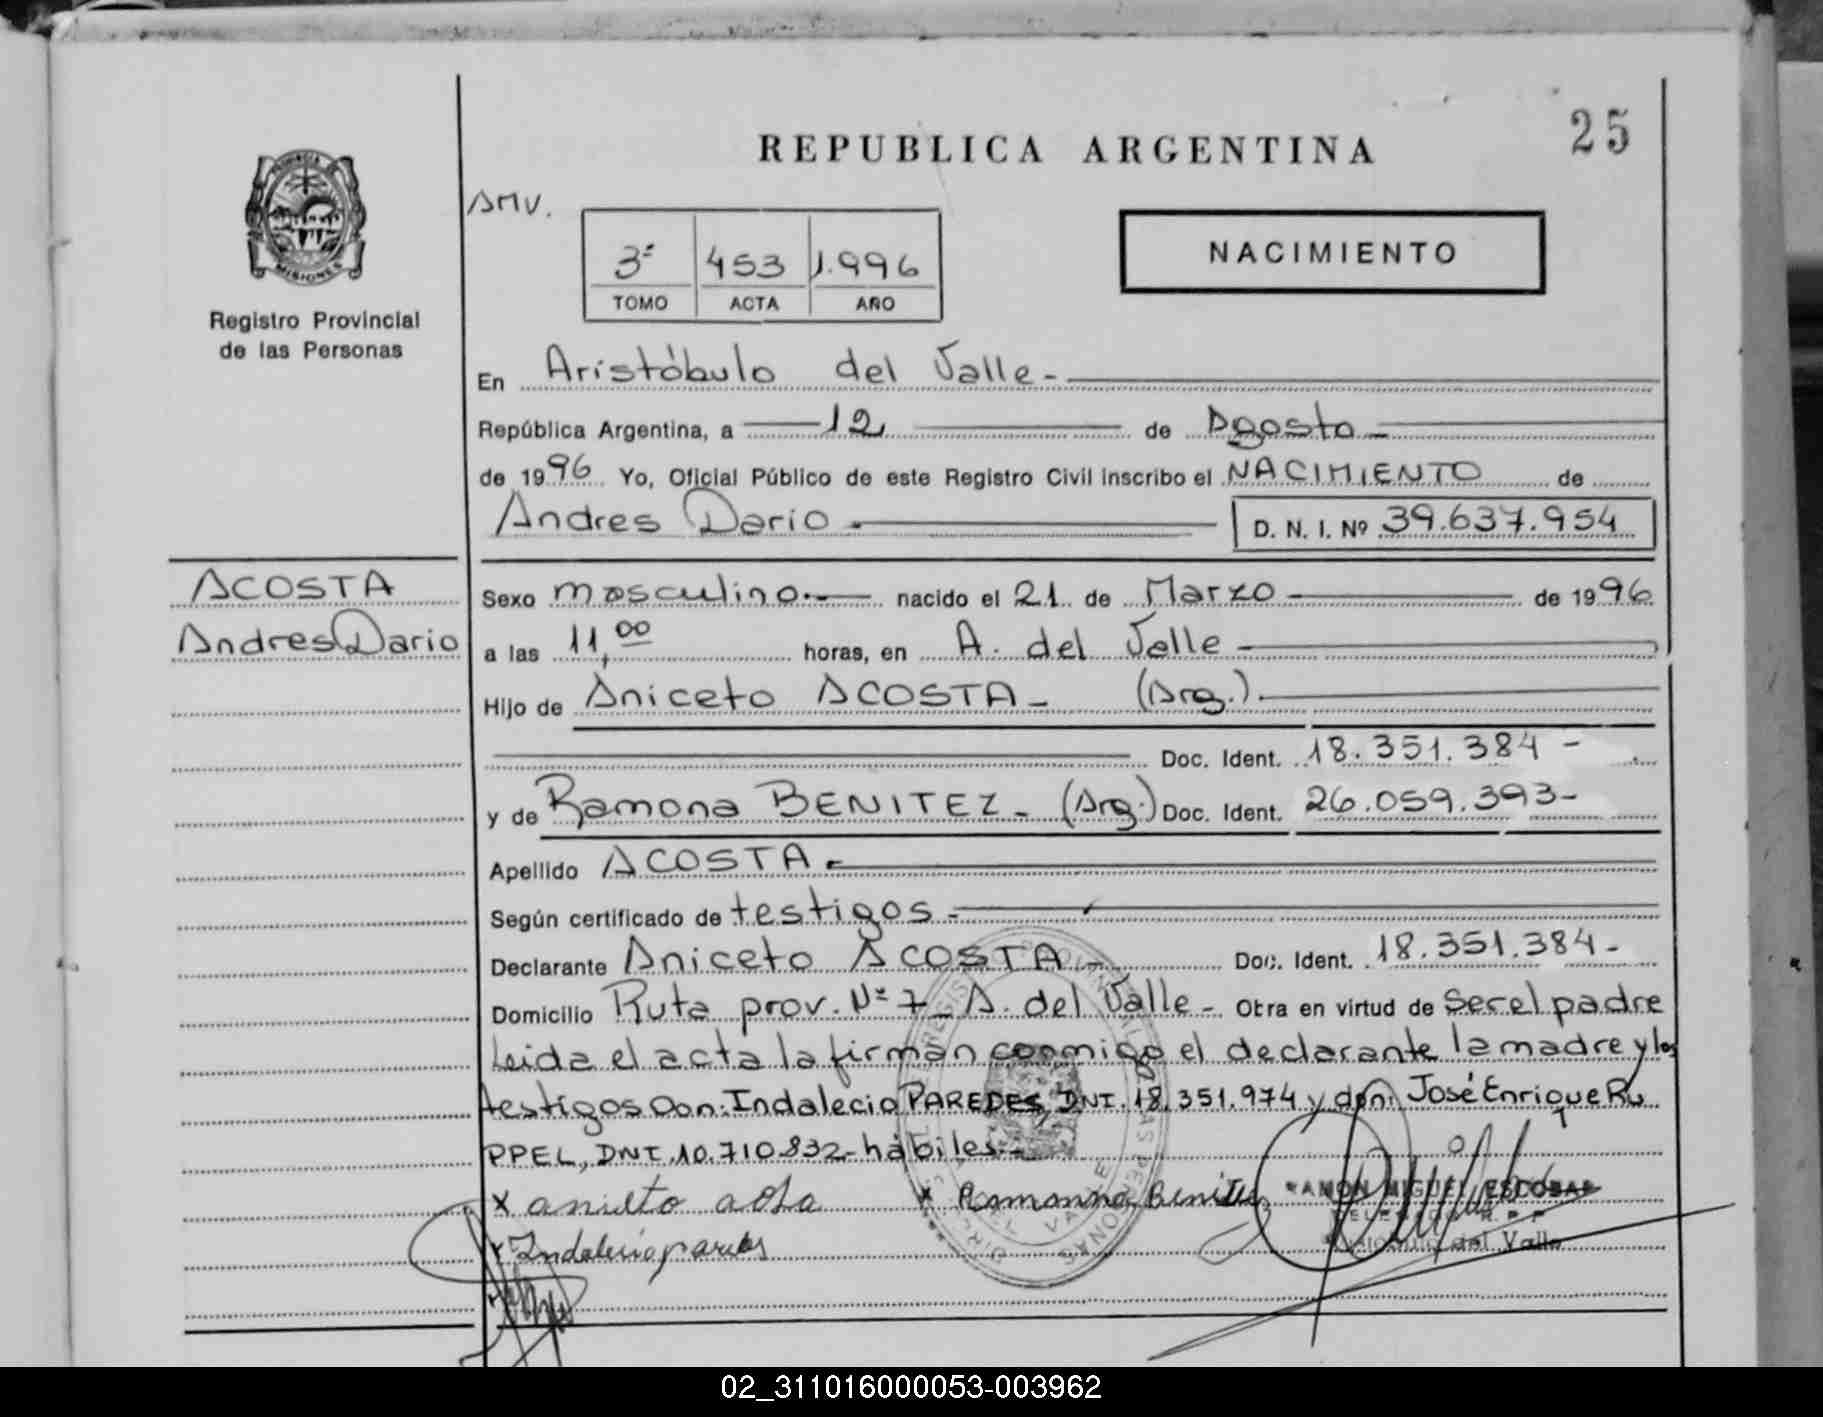 REPUBLICA ARGENTINA
25
PROVINCIA DE
MISIONES
Registro Provincial
de las Personas
AMV.
3º 453 1.996
TOMO ACTA AÑO
NACIMIENTO
En Aristóbulo del Valle -
República Argentina, a 12 de Agosto -
de 1996 Yo, Oficial Público de este Registro Civil inscribo el NACIMIENTO de
Andres Dario - D. N. I. Nº 39.637.954
ACOSTA
Andres Dario
Sexo masculino.- nacido el 21 de Marzo de 1996
a las 11,00 horas, en A. del Valle -
Hijo de Aniceto ACOSTA - (Arg.).
Doc. Ident. 18.351.384 -
y de Ramona BENITEZ - (Arg.) Doc. Ident. 26.059.393-
Apellido ACOSTA -
Según certificado de testigos -
Declarante Aniceto ACOSTA - Doc. Ident. 18.351.384 -
Domicilio Ruta prov. Nº 7 - A. del Valle - Obra en virtud de ser el padre
Leida el acta la firman conmigo el declarante la madre y los
testigos Don: Indalecio PAREDES, DNI. 18.351.974 y don: José Enrique Ru
PPEL, DNI. 10.710.832- hábiles.-
x
x Ramona Benitez
Indalecio paredes
RAMON MIGUEL ESCOBAR
del Valle
02_311016000053-003962